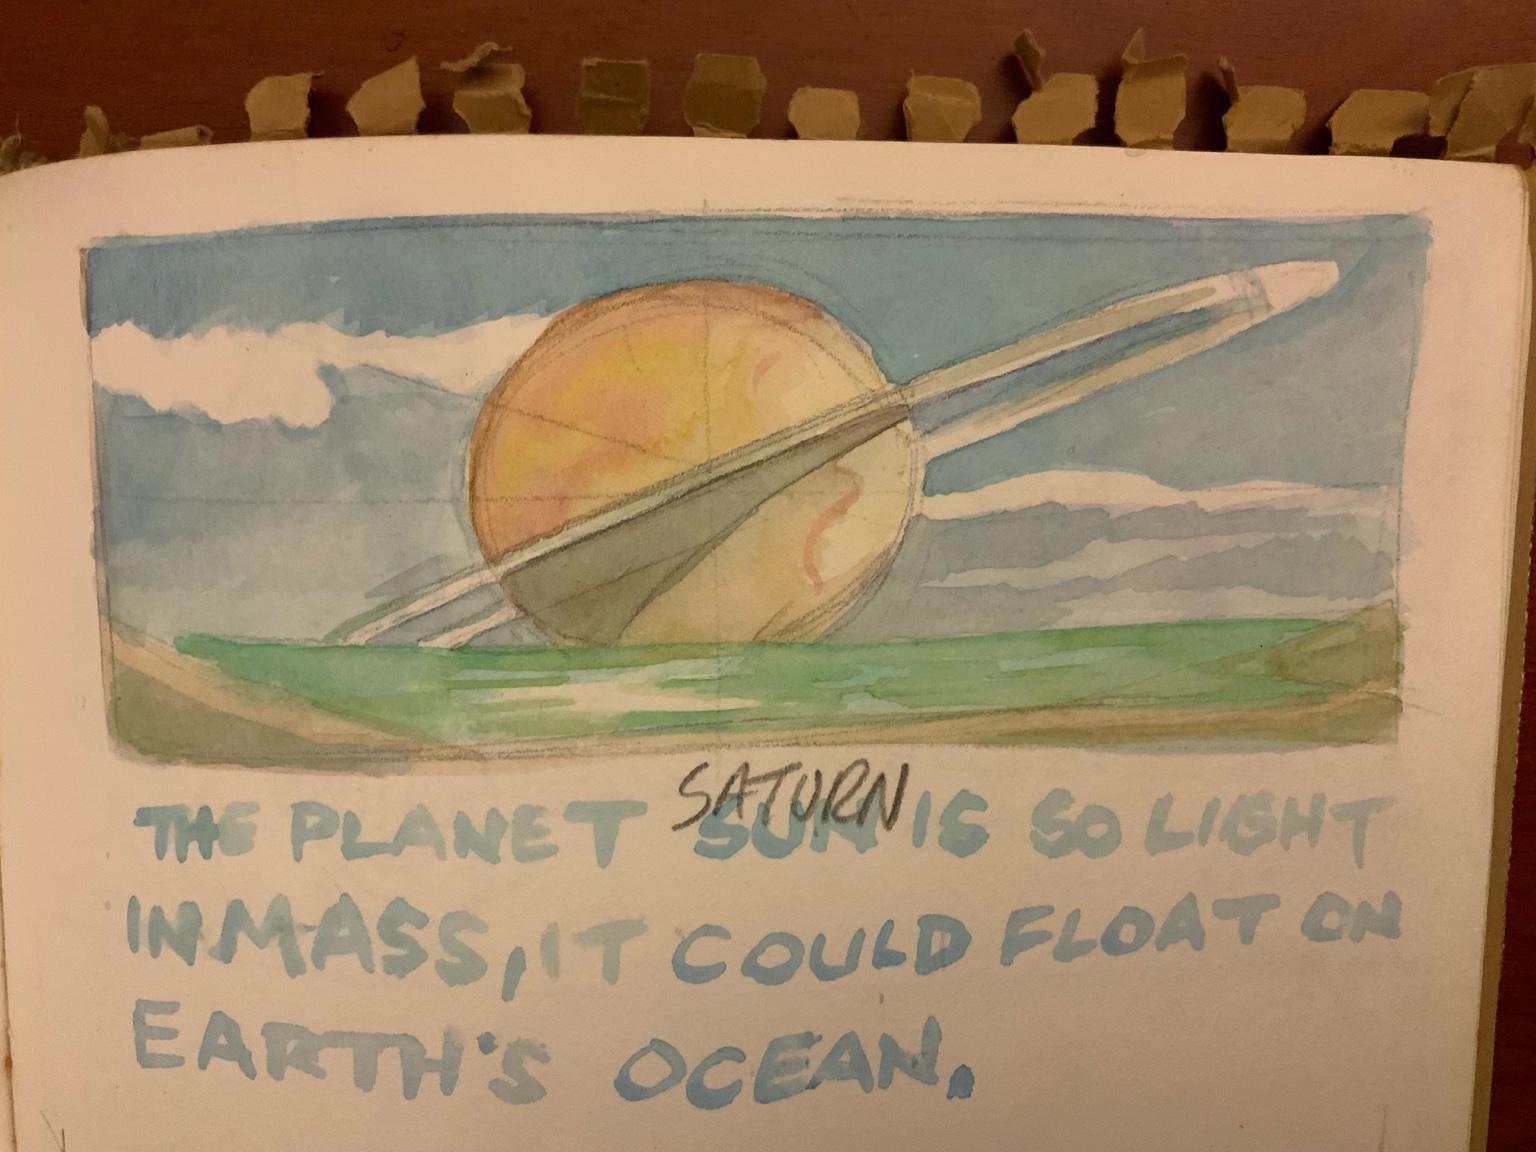 SATURN
THE PLANET SUN IS SO LIGHT
IN MASS, IT COULD FLOAT ON
EARTH'S OCEAN.